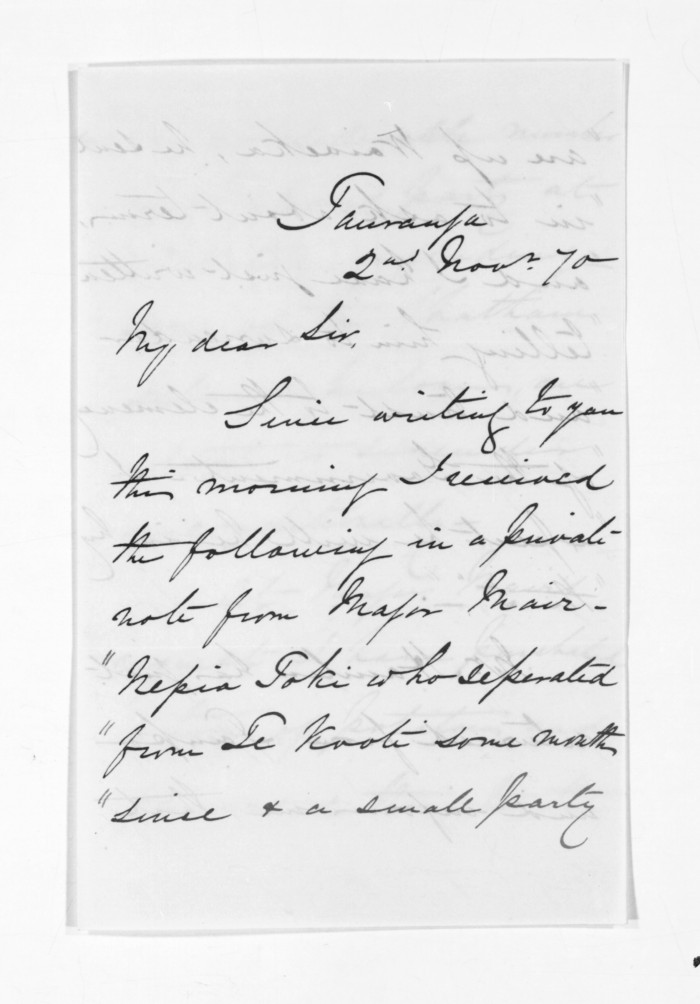 Tauranga
2nd Novr. 70
My dear Sir,
Since writing to you
this morning I received
the following in a private
note from Major Mair -
"Nepia Toki who seperated
"from Te Kooti some months
"since & a small party